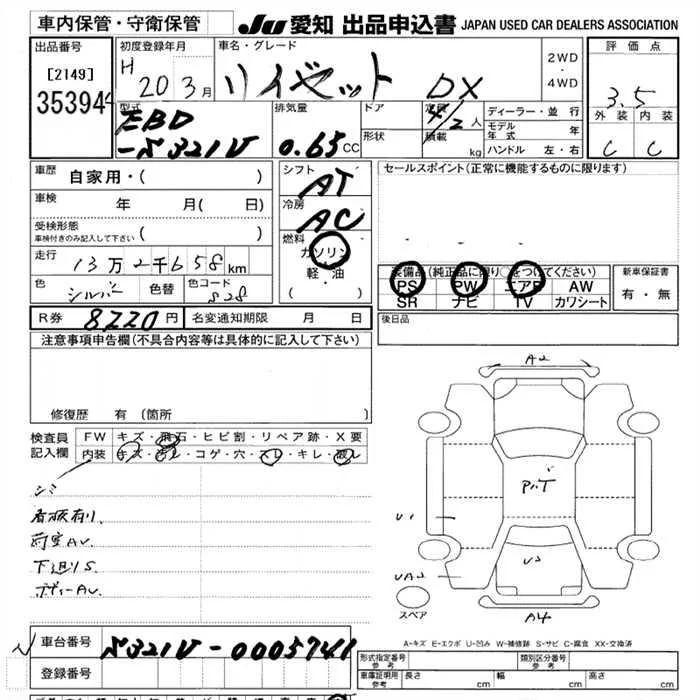 車内保管・守衛保管 JU 愛知 出品申込書 JAPAN USED CAR DEALERS ASSOCIATION
出品番号 初度登録年月 車名・グレード 2WD ・ 4WD 評価点
[2149] H 20 3月 DX 3.5
35394
型式 排気量 ドア 定員 4/2 人 ディーラー・並行 外装 内装
EBD 0.65 CC 形状 積載 kg モデル年式 年 C C
-S321V ハンドル 左・右
車歴 自家用・( ) シフト AT セールスポイント(正常に機能するものに限ります)
車検 年 月( 日) 冷房 AC
受検形態 燃料 ガソリン
車検付きのみ記入して下さい
走行 13万2千658km 軽・油 装備品(純正品に限り○をつけてください) 新車保証書
色 シルバー 色替 色コード S28 ( ) PS PW エアB AW 有・無
SR ナビ TV カワシート
R券 8220円 名変通知期限 月 日 後日品
注意事項申告欄(不具合内容等は具体的に記入して下さい)
修復歴 有 (箇所
検査員 FW キズ・飛石・ヒビ割・リペア跡・X要
記入欄 内装 キズ・ ・コゲ・穴・スレ・キレ・破レ
シミ
看板有り
荷室AV.
下廻りS
ボディーAV
A2
U1
UA2
U3
A4
スペア
A-キズ E-エクボ U-凹み W-補修跡 S-サビ C-腐食 XX-交換済
車台番号 S321V-0005741
登録番号
形式指定番号 参考 類別区分番号 参考
車庫証明用 参考 長さ cm 幅 cm 高さ cm